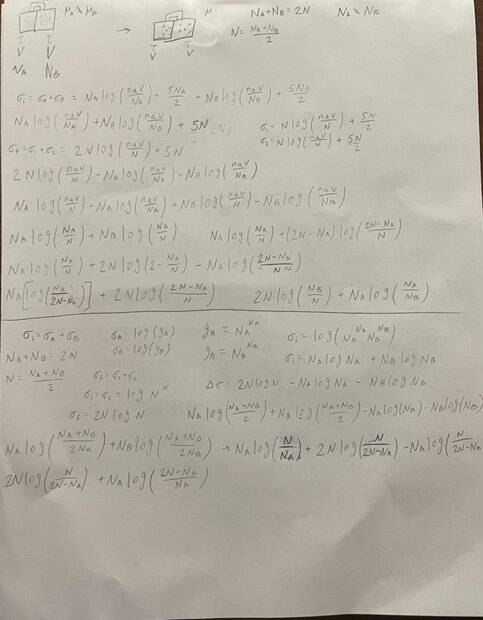 μA > μB → μ NA+NB = 2N NA > NB
τ τ τ τ N = (NA+NB)/2
V V V V
NA NB
σi = σA+σB = NA log(nQV/NA) + 5NA/2 + NB log(nQV/NB) + 5NB/2
NA log(nQV/NA) + NB log(nQV/NB) + 5N σ1 = N log(nQV/N) + 5N/2
σf = σ1+σ2 = 2N log(nQV/N) + 5N σ2 = N log(nQV/N) + 5N/2
2N log(nQV/N) - NA log(nQV/NA) - NB log(nQV/NB)
NA log(nQV/N) - NA log(nQV/NA) + NB log(nQV/N) - NB log(nQV/NB)
NA log(NA/N) + NB log(NB/N) NA log(NA/N) + (2N-NA) log((2N-NA)/N)
NA log(NA/N) + 2N log(2 - NA/N) - NA log((2N-NA)/N)
NA[log(NA/(2N-NA))] + 2N log((2N-NA)/N) 2N log(NB/N) + NA log(NA/NB)
σi = σA + σB σA = log(gA) gA = NA^NA σi = log(NA^NA NB^NB)
NA+NB = 2N σB = log(gB) gB = NB^NB σi = NA log NA + NB log NB
N = (NA+NB)/2 σf = σ1+σ2
σ1 = σ2 = log N^N Δσ = 2N log N - NA log NA - NB log NB
σf = 2N log N NA log((NA+NB)/2) + NB log((NA+NB)/2) - NA log(NA) - NB log(NB)
NA log((NA+NB)/2NA) + NB log((NA+NB)/2NB) → NA log(N/NA) + 2N log(N/(2N-NA)) - NA log(N/(2N-NA
2N log(N/(2N-NA)) + NA log((2N-NA)/NA)